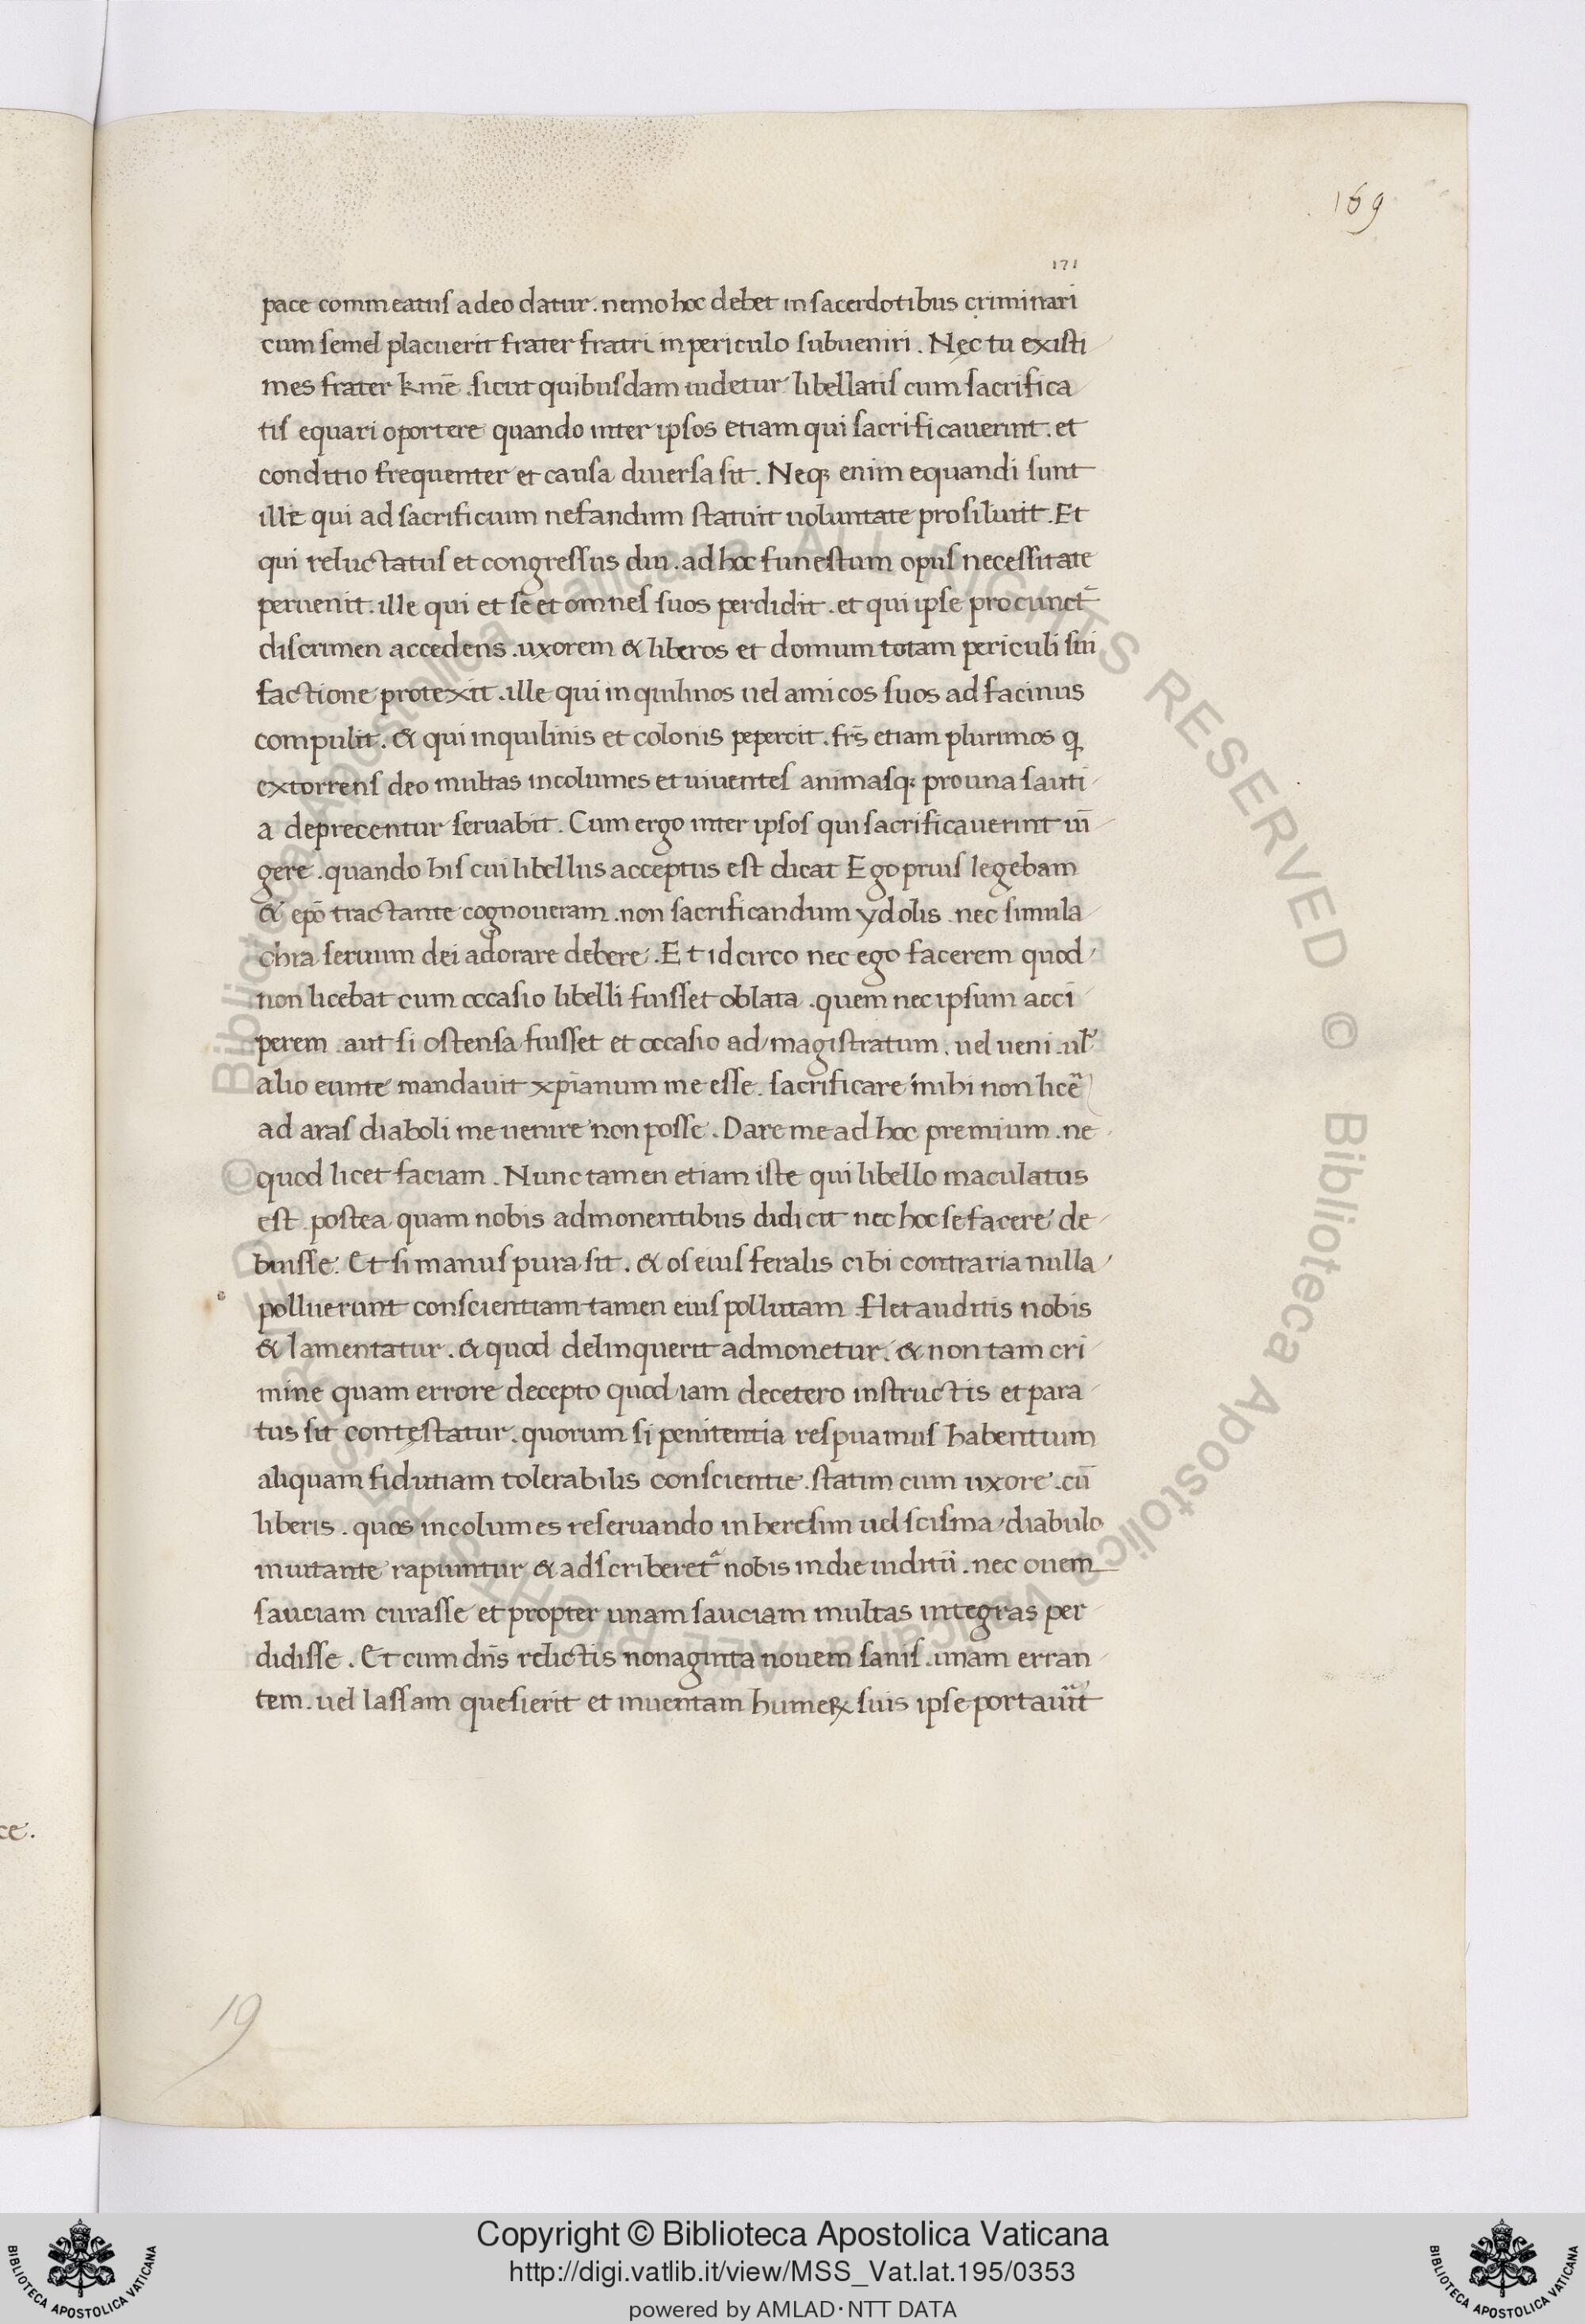 169
171
pace commeatus a deo datur. nemo hoc debet in sacerdotibus criminari
cum semel placuerit frater fratri in periculo subueniri. Nęc tu existi
mes frater kmē. sicut quibusdam uidetur libellatis cum sacrifica
tis equari oportere quando inter ipsos etiam qui sacrificauerint. et
conditio frequenter et causa diuersa sit. Neq; enim equandi sunt
ille qui ad sacrificium nefandum statuit uoluntate prosiliuit. Et
qui reluctatus et congressus diu. ad hoc funestum opus necessitate
peruenit. ille qui et se et omnes suos perdidit. et qui ipse pro cunct̄
discrimen accedens. uxorem & liberos et domum totam periculi sui
factione protexit. ille qui inquilinos uel amicos suos ad facinus
compulit. & qui inquilinis et colonis pepercit. frs̄ etiam plurimos q
extorrens deo multas incolumes et uiuentes animasq; pro una sauti
a deprecentur seruabit. Cum ergo inter ipsos qui sacrificauerint ui̅
gere. quando his cui libellus acceptus est dicat Ego prius legebam
& ep̄o tractante cognoueram. non sacrificandum ydolis. nec simula
chra seruum dei adorare debere. Et idcirco nec ego facerem quod
non licebat cum occasio libelli fuisset oblata. quem nec ipsum acci
perem. aut si ostensa fuisset et occasio ad magistratum. uel ueni. ul̄
alio eunte mandauit xp̄ianum me esse. sacrificare mihi non licē
ad aras diaboli me uenire non posse. Dare me ad hoc premium. ne
quod licet faciam. Nunc tamen etiam iste qui libello maculatus
est. postea quam nobis admonentibus didicit nec hoc se facere de
buisse. Et si manus pura sit. & os eius feralis cibi contraria nulla
polluerunt conscientiam tamen eius pollutam. Flet auditis nobis
& lamentatur. & quod delinquerit admonetur. & non tam cri
mine quam errore decepto quod iam decetero instructis et para
tus sit contęstatur. quorum si penitentia respuamus habentium
aliquam fidutiam tolerabilis conscientie. statim cum uxore. cū
liberis. quos incolumes reseruando in heresim uel scisma diabulo
inuitante rapiuntur & adscriberet᷑ nobis in die iuditii. nec ouem
sauciam curasse et propter unam sauciam multas integras per
didisse. Et cum dn̄s relictis nonaginta nouem sanis. unam erran
tem. uel lassam quesierit et inuentam humeꝝ suis ipse portauit
ce.
19
© Biblioteca Apostolica Vaticana ALL RIGHTS RESERVED © Biblioteca Apostolica Vaticana ALL RIGHTS RESERVED
Copyright © Biblioteca Apostolica Vaticana
http://digi.vatlib.it/view/MSS_Vat.lat.195/0353
powered by AMLAD·NTT DATA
BIBLIOTECA APOSTOLICA VATICANA
BIBLIOTECA APOSTOLICA VATICANA